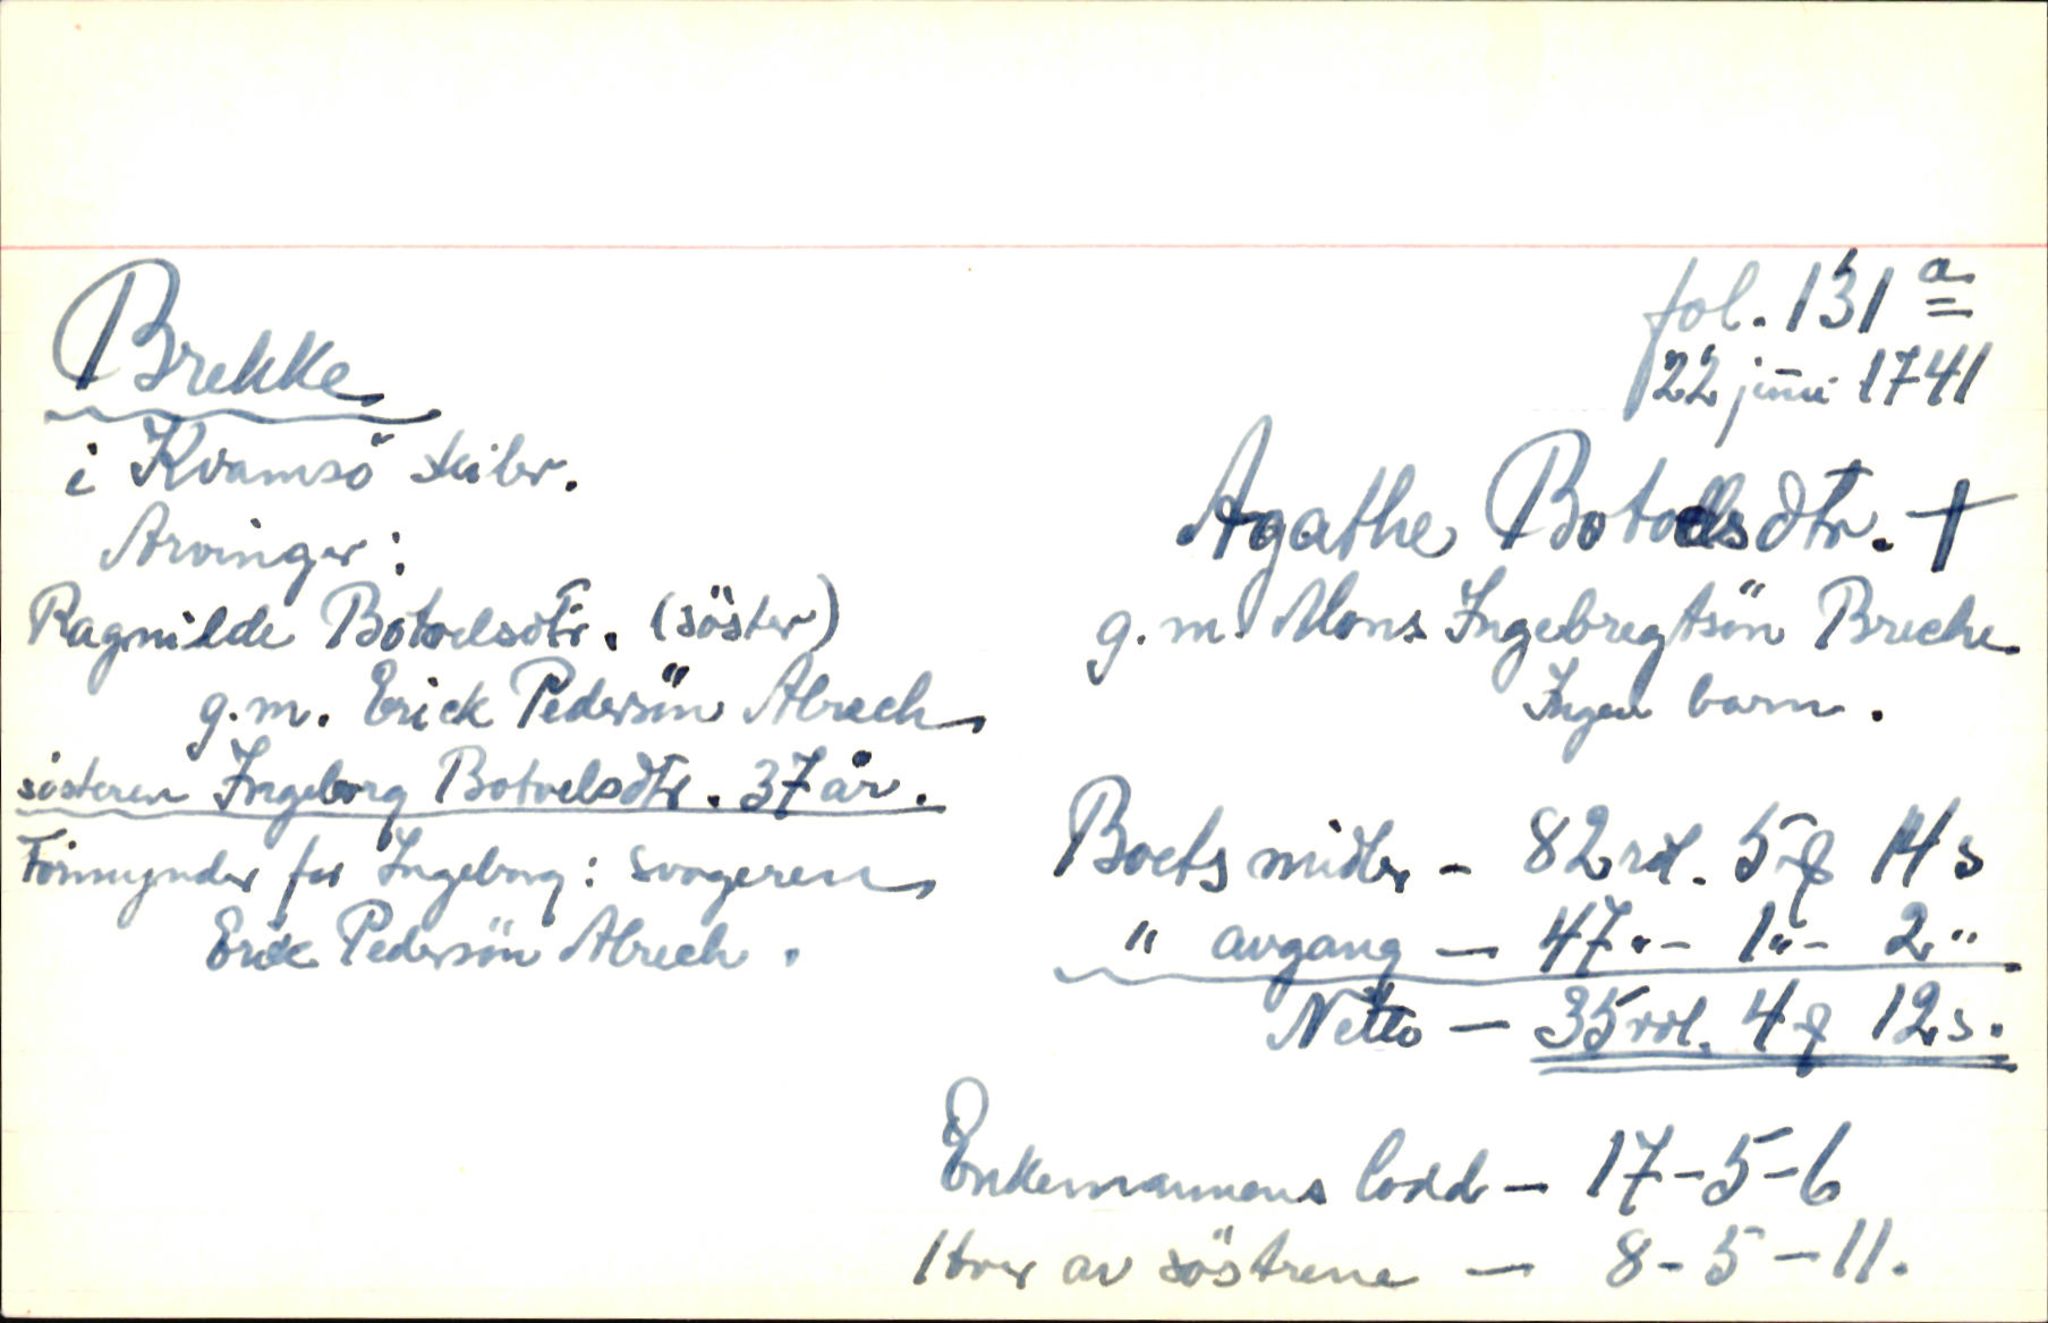 fol. 131 a
22 juni 1741
Brekke
i Kvamsö skibr.
Arvinger:
Ragnilde Botoelsdtr. (söster)
g.m. Erick Pedersön Abrech
sösteren Ingeborg Botoelsdtr. 37 år.
Formynder for Ingeborg: svogeren
Erick Pedersön Abrech.
Agathe Botoelsdtr. †
g.m. Mons Ingebregtsön Breche
Ingen barn.
Boets midler - 82 rdl. 5 ꝑ 14 s
" avgang — 47 " - 1 " - 2 "
Netto — 35 rdl. 4 ꝑ 12 s.
Enkemannens lodd — 17-5-6
Hver av söstrene — 8-5-11.